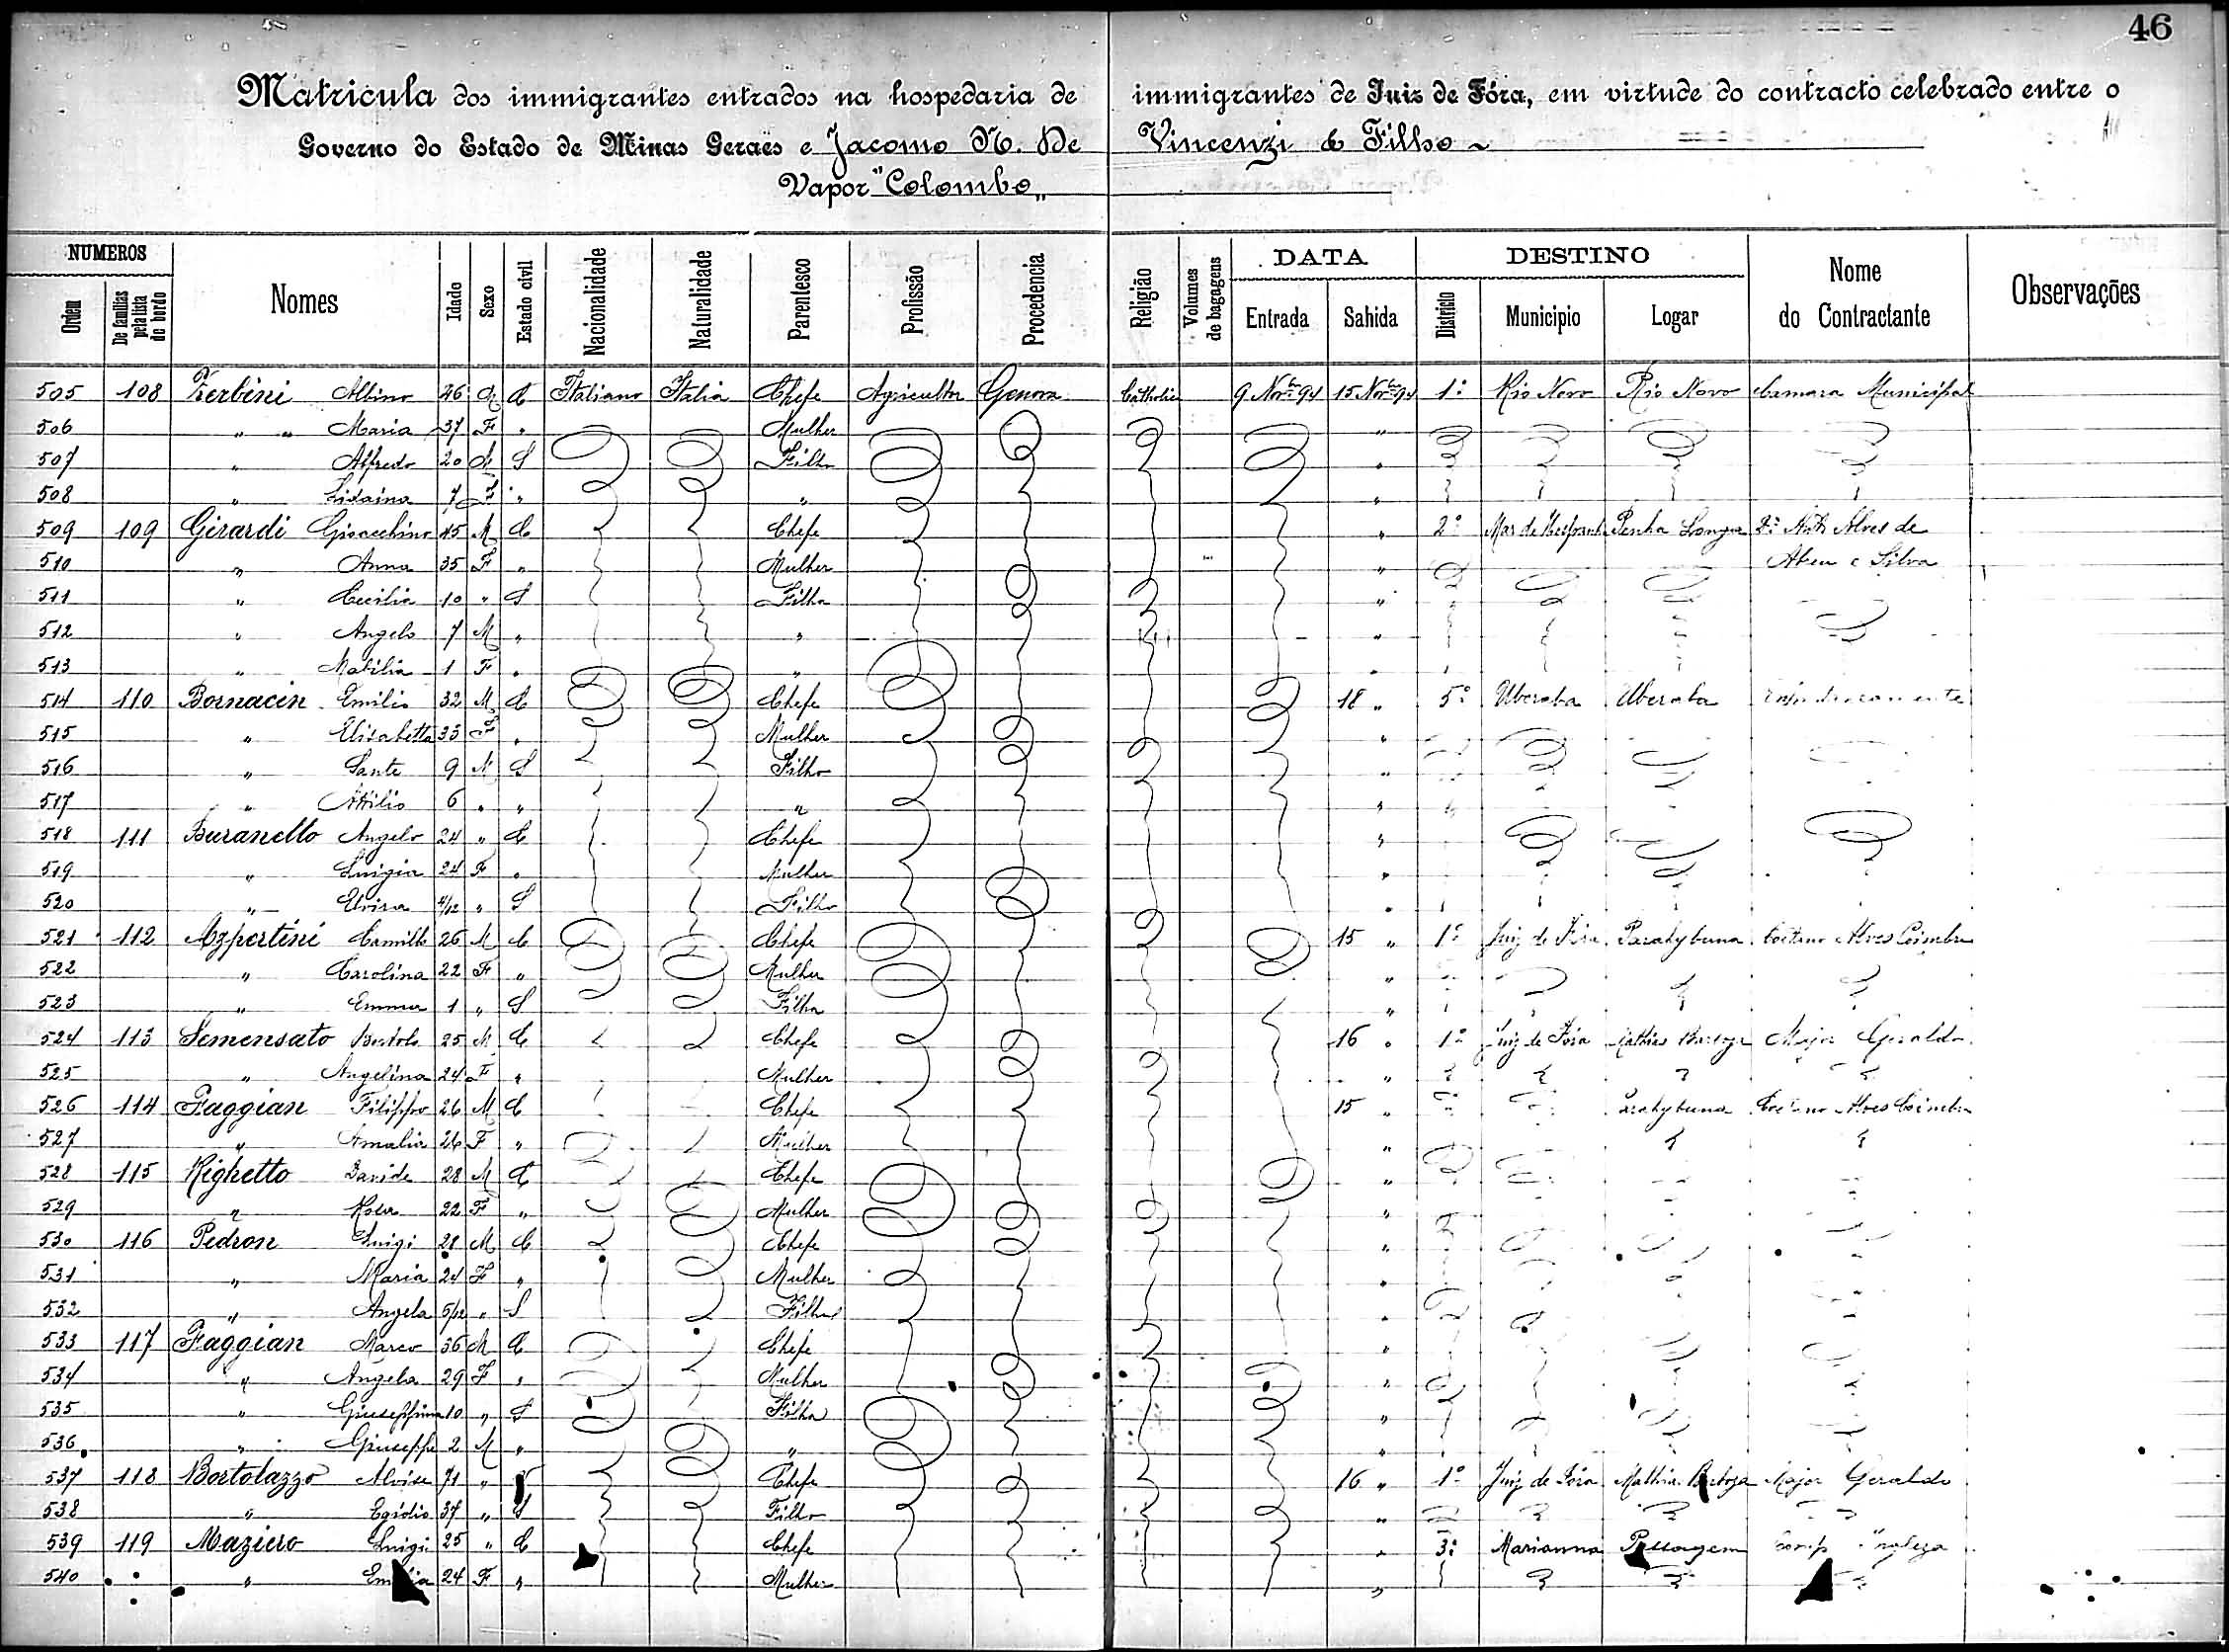 46
Matricula dos immigrantes entrados na hospedaria de immigrantes de Juiz de Fóra, em virtude do contracto celebrado entre o
Governo do Estado de Minas Geraes e Jacomo N. De Vincenzi & Filho
Vapor "Colombo"
NUMEROS
Ordem De familias pela lista do bordo Nomes Idade Sexo Estado civil Nacionalidade Naturalidade Parentesco Profissão Procedencia Religião Volumes de bagagens DATA Entrada Sahida DESTINO Districto Municipio Logar Nome do Contractante Observações
505 108 Zerbini Albino 46 M C Italiano Italia Chefe Agricultor Genova Catholic 9 Nobr 94 15 Nobr 94 1º Rio Novo Rio Novo Camara Municipal
506 " " Maria 37 F " Mulher "
507 " Alfredo 20 M S Filho "
508 " 7 F " " "
509 109 Girardi Gioacchino 45 M C Chefe " 2º Mar de Hespanha Penha Longa Alves de
510 " Anna 35 F " Mulher " Abreu e Silva
511 " Cecilia 10 " S Filha "
512 " Angelo 7 M " " "
513 " Mabilia 1 F " " "
514 110 Bornacin Emilio 32 M C Chefe 18 " 5º Uberaba Uberaba
515 " Elisabetta 33 F " Mulher "
516 " Sante 9 M S Filho "
517 " Attilio 6 " " " "
518 111 Buranello Angelo 24 " C Chefe "
519 " Luigia 24 F " Mulher "
520 " Elvira 4/12 " S Filha "
521 112 Azpertini Camillo 26 M C Chefe 15 " 1º Juiz de Fóra Parahybuna Caetano Alves Coimbra
522 " Carolina 22 F " Mulher "
523 " Emma 1 " S Filha "
524 113 Semensato Bortolo 25 M C Chefe 16 " 1º Juiz de Fóra Mathias Barboza Major Geraldo
525 " Angelina 24 F " Mulher "
526 114 Faggian Filippo 26 M C Chefe 15 " Parahybuna Caetano Alves Coimbra
527 " Amalia 26 F " Mulher "
528 115 Righetto Davide 28 M C Chefe "
529 " Rosa 22 F " Mulher "
530 116 Pedron Luigi 28 M C Chefe "
531 " Maria 24 F " Mulher "
532 " Angela 5/12 " S Filha "
533 117 Faggian Marco 36 M C Chefe "
534 " Angela 29 F " Mulher "
535 " Giuseppina 10 " S Filha "
536 " Giuseppe 2 M " " "
537 118 Bortolazzo Alvise 71 " Chefe 16 " 1º Juiz de Fóra Mathias Barboza Major Geraldo
538 " Egidio 37 " S Filho "
539 119 Maziero Luigi 25 " C Chefe " 3º Marianna Passagem Comp
540 " Emilia 24 F " Mulher "